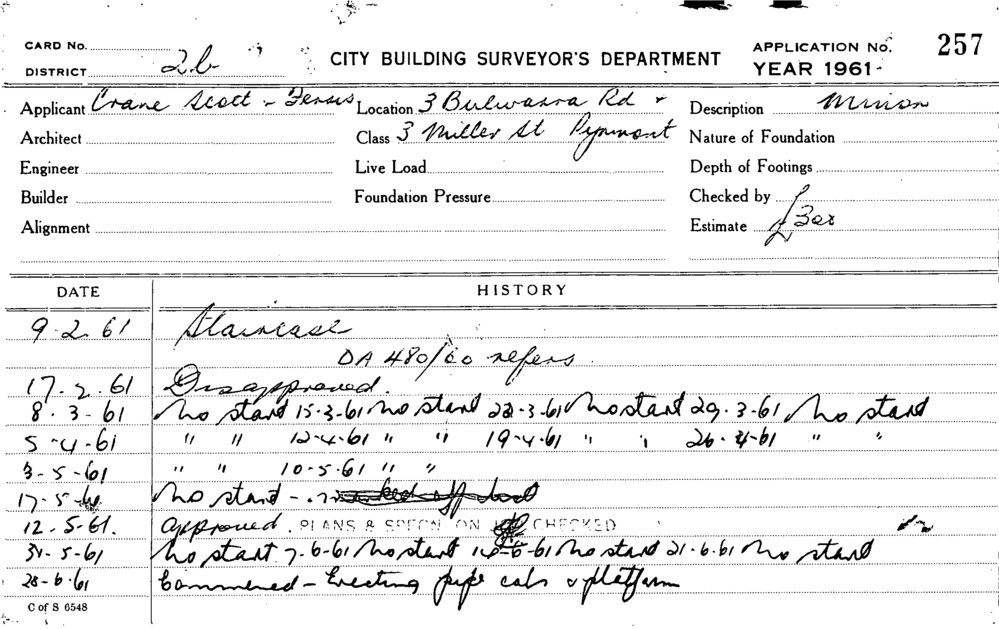 CARD No.
DISTRICT 2b
CITY BUILDING SURVEYOR'S DEPARTMENT
APPLICATION No. 257
YEAR 1961
Applicant Crane Scott - Location 3 Bulwarra Rd + Description Minion
Architect Class 3 Miller St Pyrmont Nature of Foundation
Engineer Live Load Depth of Footings
Builder Foundation Pressure Checked by
Alignment Estimate
DATE HISTORY
9-2-61 Staircase
DA 480/60 refers
17-2-61 Disapproved.
8-3-61 No start 15-3-61 No start 22-3-61 No start 29-3-61 No start
5-4-61 " " 12-4-61 " " 19-4-61 " " 26-4-61 " "
3-5-61 " " 10-5-61 " "
17-5-61 No start -
12.5.61. approved. PLANS & SPECN ON CHECKED
31-5-61 No start 7-6-61 No start 14-6-61 No start 21-6-61 No start
28-6-61 Commenced - Erecting pipe & platform
C of S 6548